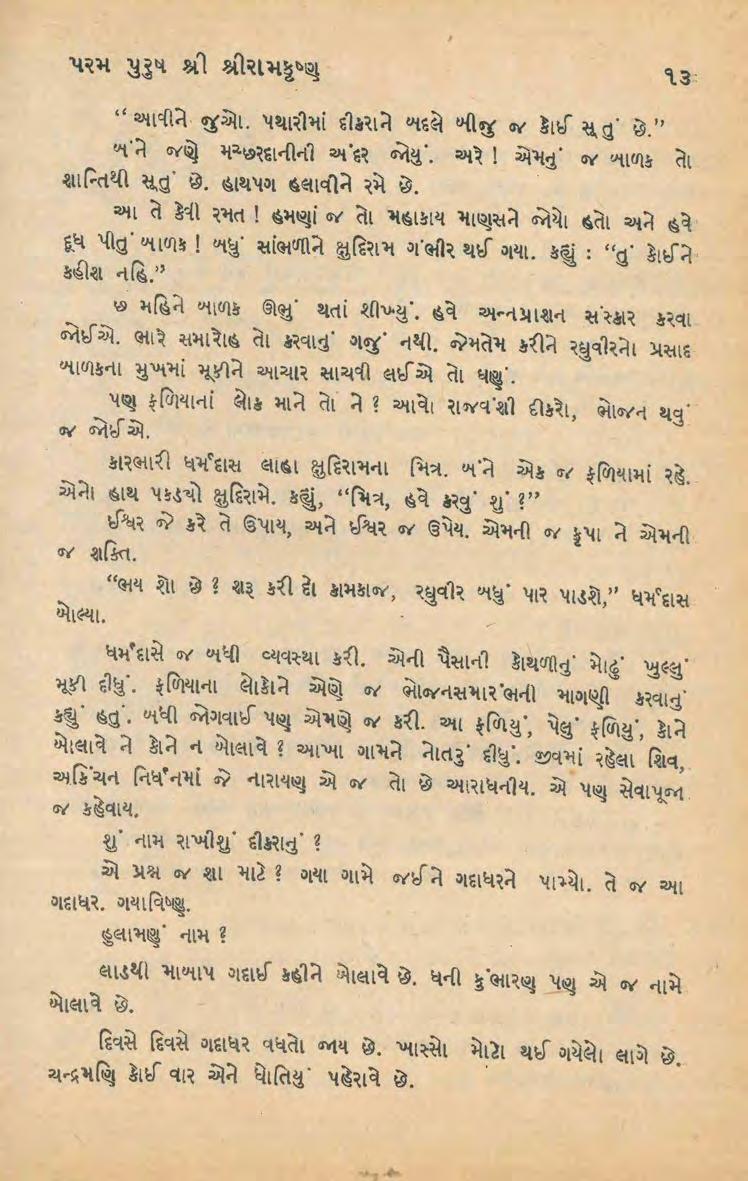 પરમ પુરુષ શ્રી શ્રીરામકૃષ્ણ
૧૩
“આવીને જુઓ. પથારીમાં દીકરાને બદલે બીજુ જ કોઈ સૂતું છે.”
બંને જણે મચ્છરદાનીની અંદર જોયું. અરે ! એમનું જ બાળક તો
શાન્તિથી સૂતું છે. હાથપગ હલાવીને રમે છે.
આ તે કેવી રમત ! હમણાં જ તો મહાકાય માણસને જોયો હતો અને હવે
દૂધ પીતું બાળક ! બધું સાંભળીને ક્ષુદિરામ ગંભીર થઈ ગયા. કહ્યું : “તું કોઈને
કહીશ નહિ.”
છ મહિને બાળક ઊભું થતાં શીખ્યું. હવે અન્નપ્રાશન સંસ્કાર કરવા
જોઈએ. ભારે સમારોહ તો કરવાનું ગજું નથી. જેમતેમ કરીને રઘુવીરનો પ્રસાદ
બાળકના મુખમાં મૂકીને આચાર સાચવી લઈએ તો ઘણું.
પણ ફળિયાનાં લોક માને તો ને ? આવો રાજવંશી દીકરો, ભોજન થવું
જ જોઈએ.
કારભારી ધર્મદાસ લાહા ક્ષુદિરામના મિત્ર. બંને એક જ ફળિયામાં રહે.
એનો હાથ પકડ્યો ક્ષુદિરામે. કહ્યું, “મિત્ર, હવે કરવું શું ?”
ઈશ્વર જે કરે તે ઉપાય, અને ઈશ્વર જ ઉપેય. એમની જ કૃપા ને એમની
જ શક્તિ.
“ભય શો છે ? શરૂ કરી દો કામકાજ, રઘુવીર બધું પાર પાડશે,” ધર્મદાસ
બોલ્યા.
ધર્મદાસે જ બધી વ્યવસ્થા કરી. એની પૈસાની કોથળીનું મોઢું ખુલ્લું
મૂકી દીધું. ફળિયાના લોકોને એણે જ ભોજનસમારંભની માગણી કરવાનું
કહ્યું હતું. બધી જોગવાઈ પણ એમણે જ કરી. આ ફળિયું, પેલું ફળિયું, કોને
બોલાવે ને કોને ન બોલાવે ? આખા ગામને નોતરું દીધું. જીવમાં રહેલા શિવ,
અકિંચન નિર્ધનમાં જે નારાયણ એ જ તો છે આરાધનીય. એ પણ સેવાપૂજા
જ કહેવાય.
શું નામ રાખીશું દીકરાનું ?
એ પ્રશ્ન જ શા માટે ? ગયા ગામે જઈને ગદાધરને પામ્યો. તે જ આ
ગદાધર. ગયાવિષ્ણુ.
હુલામણું નામ ?
લાડથી માબાપ ગદાઈ કહીને બોલાવે છે. ધની કુંભારણ પણ એ જ નામે
બોલાવે છે.
દિવસે દિવસે ગદાધર વધતો જાય છે. ખાસ્સો મોટો થઈ ગયેલો લાગે છે.
ચન્દ્રમણિ કોઈ વાર એને ધોતિયું પહેરાવે છે.